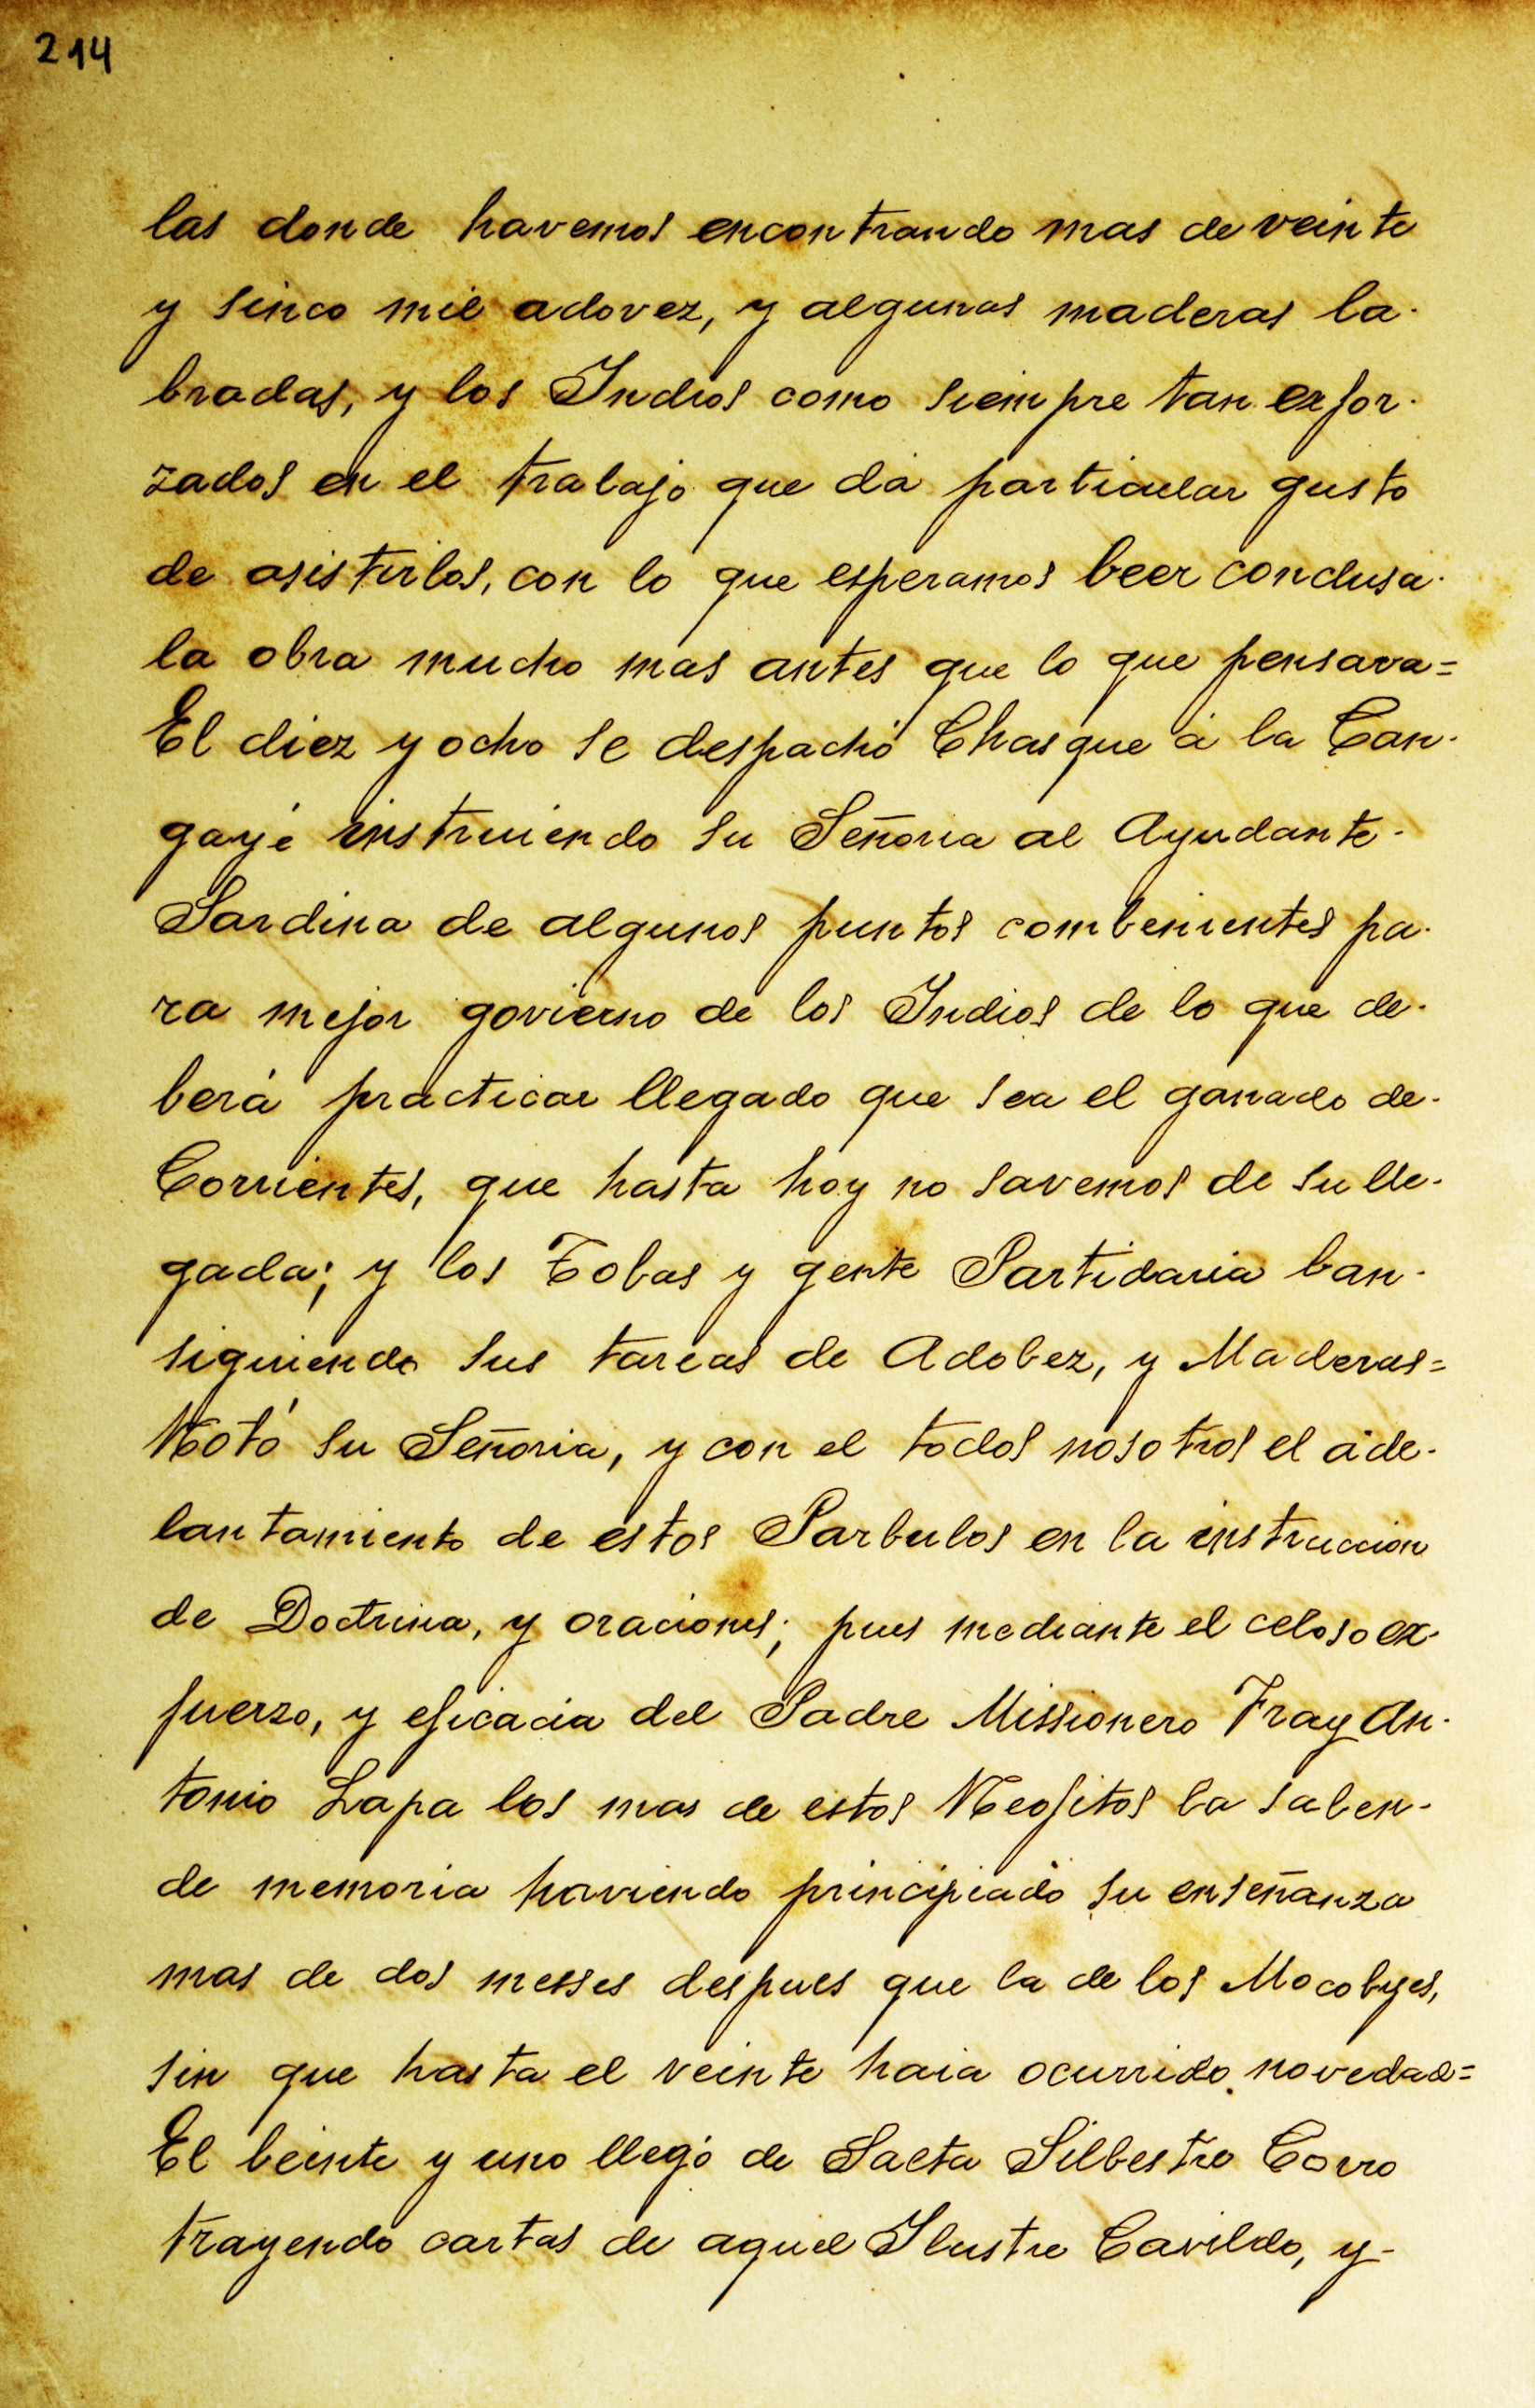 214
las donde havemos encontrando mas de veinte
y sinco mil adovez, y algunas maderas la-
bradas, y los Indios como siempre tan exfor-
zados en el trabajo que dá particular gusto
de asistirlos, con lo que esperamos beer conclusa-
la obra mucho mas antes que lo que pensava=
El diez y ocho se despachó Chasque á la Can-
gayé instruiendo su Señoria al Ayudante-
Sardina de algunos puntos combenientes pa-
ra mejor govierno de los Indios de lo que de-
berá practicar llegado que sea el ganado de-
Corrientes, que hasta hoy no savemos de su lle-
gada; y los Tobas y gente Partidaria ban-
siguiendo sus tareas de Adobez, y Maderas=
Notó su Señoria, y con el todos nosotros el ade-
lantamiento de estos Parbulos en la instruccion
de Doctrina, y oraciones; pues mediante el celoso ex-
fuerzo, y eficacia del Padre Missionero Fray An-
tonio Lapa los mas de estos Neofitos la saben-
de memoria haviendo principiado su enseñanza
mas de dos messes despues que la de los Mocobyes,
sin que hasta el veinte haia ocurrido novedad=
El beinte y uno llegó de Salta Silbestre Corro
trayendo cartas de aquel Ilustre Cavildo, y-